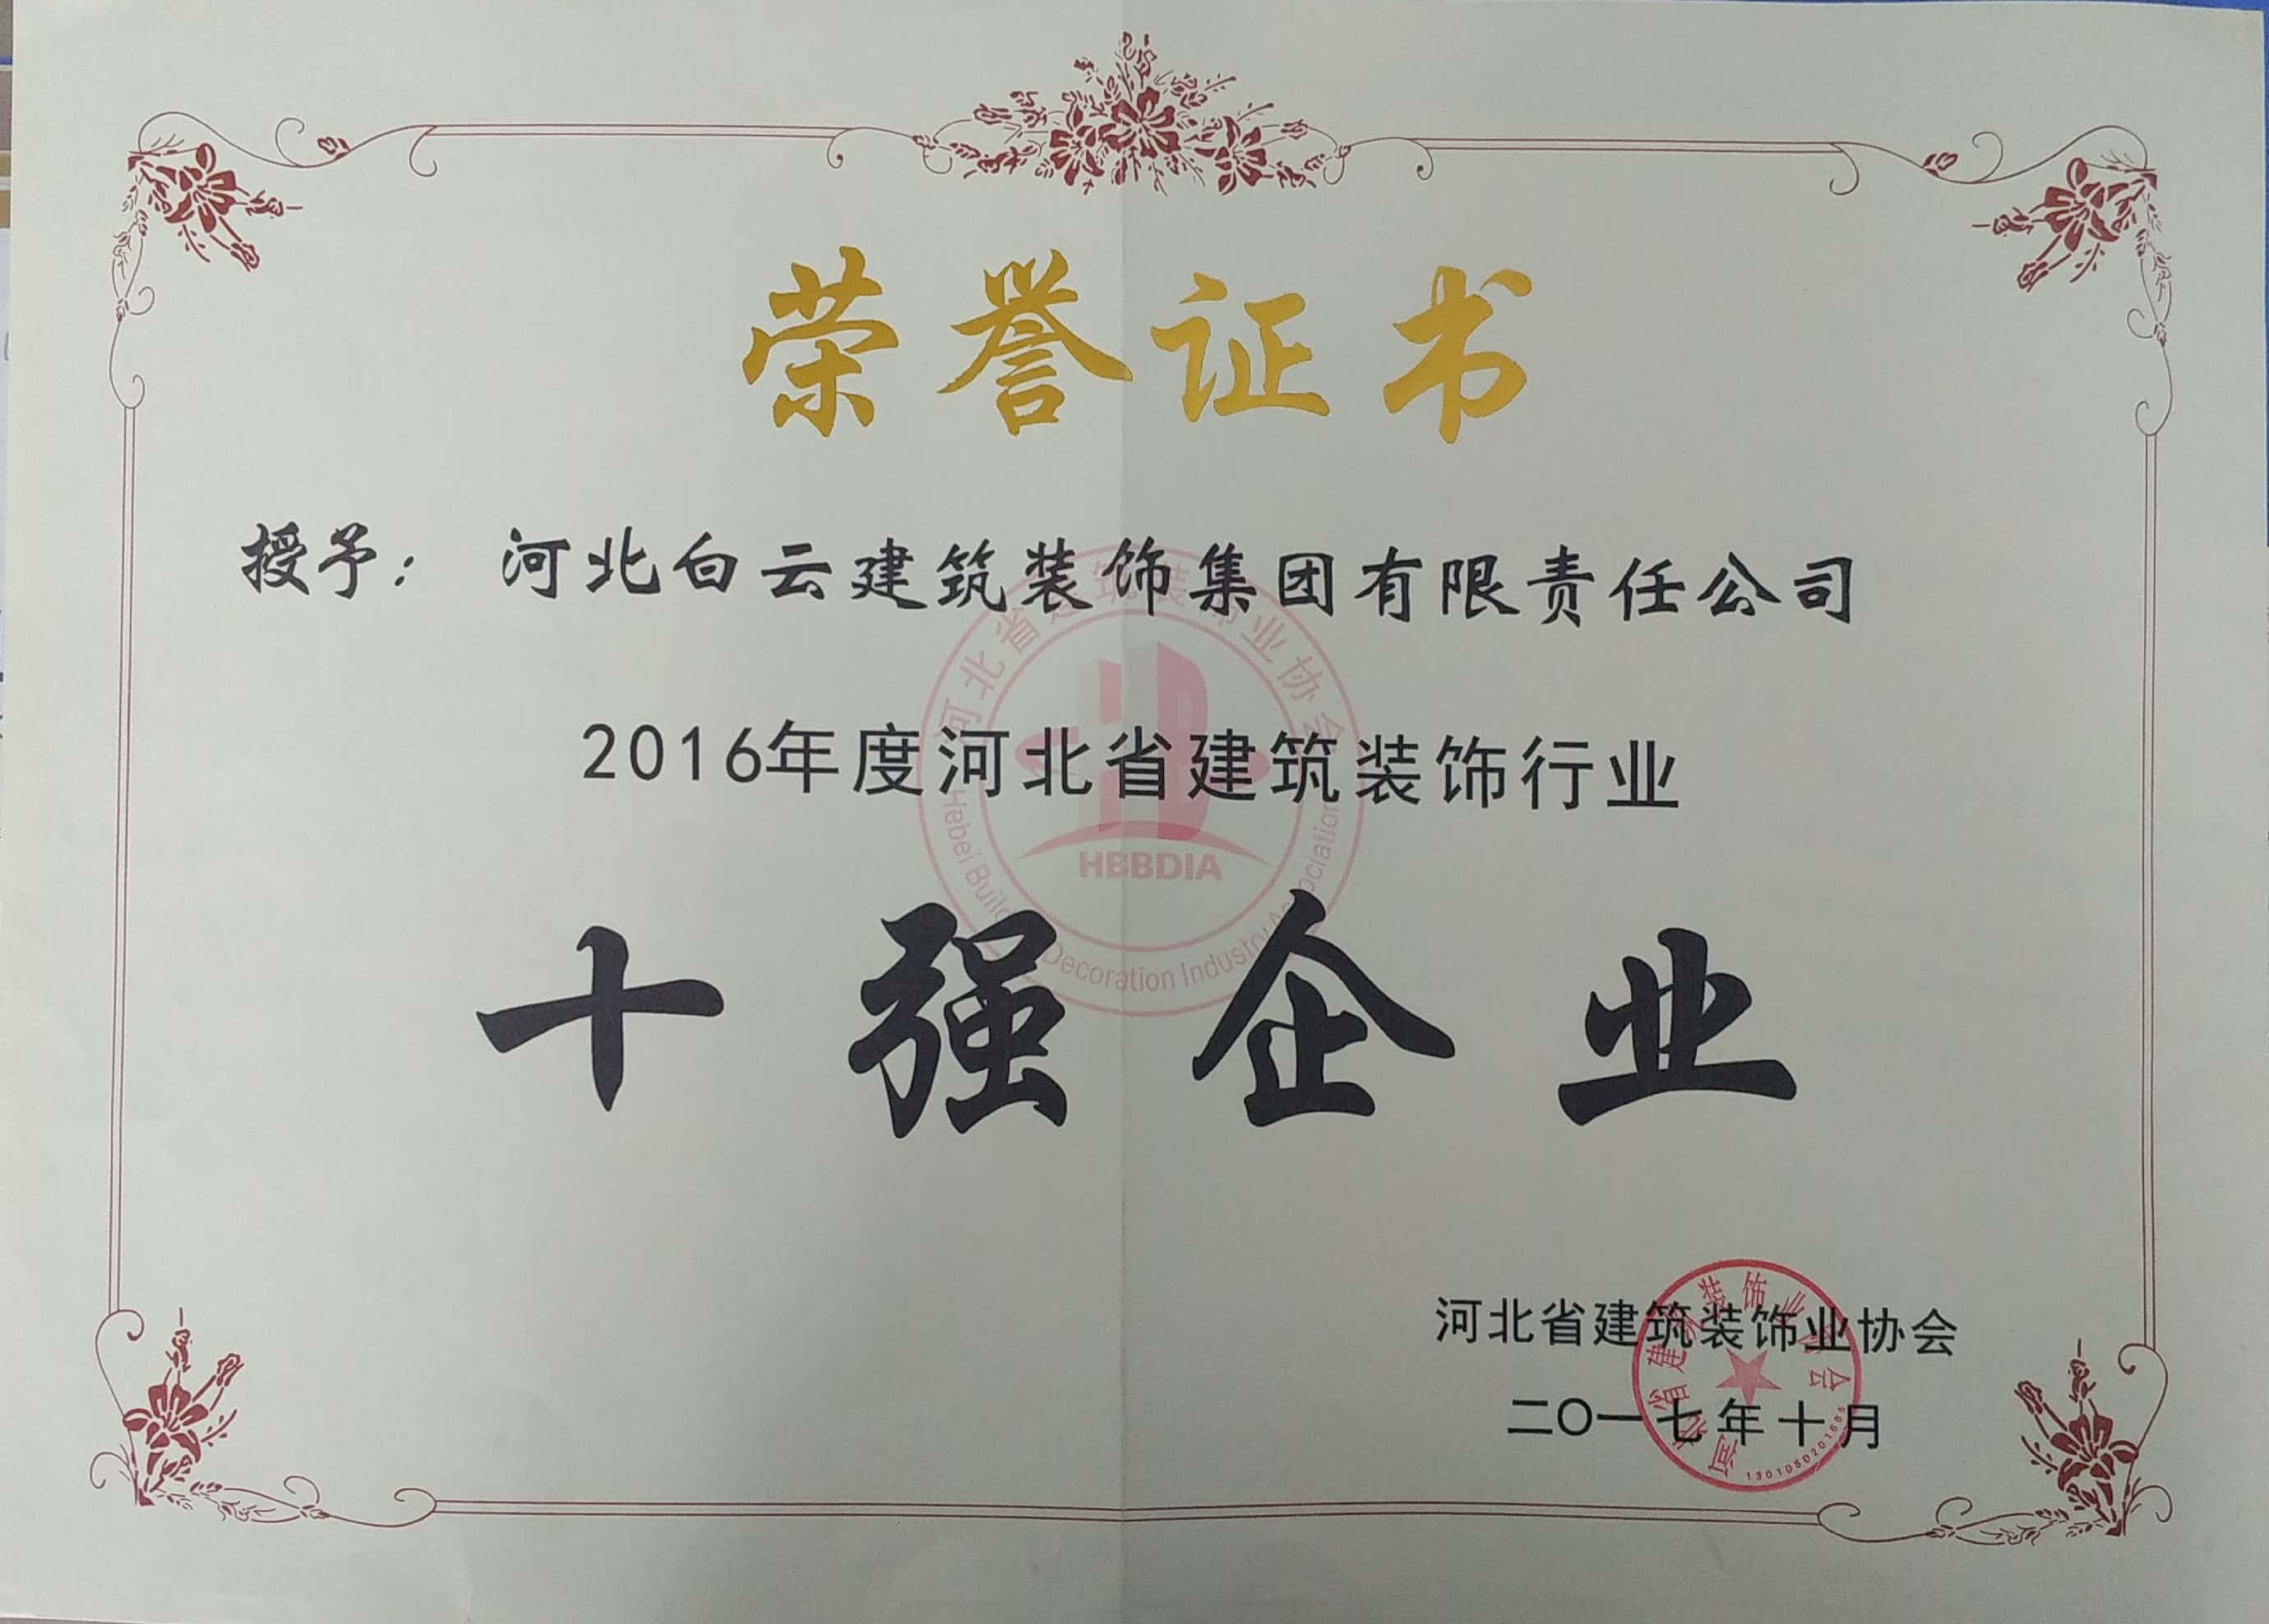 荣誉证书
授予： 河北白云建筑装饰集团有限责任公司
河北省建筑装饰业协会
2016年度河北省建筑装饰行业
HBBDIA
Hebei Decoration Industry Association
十强企业
河北省建筑装饰业协会
二〇一七年十月
河北省建筑装饰业协会